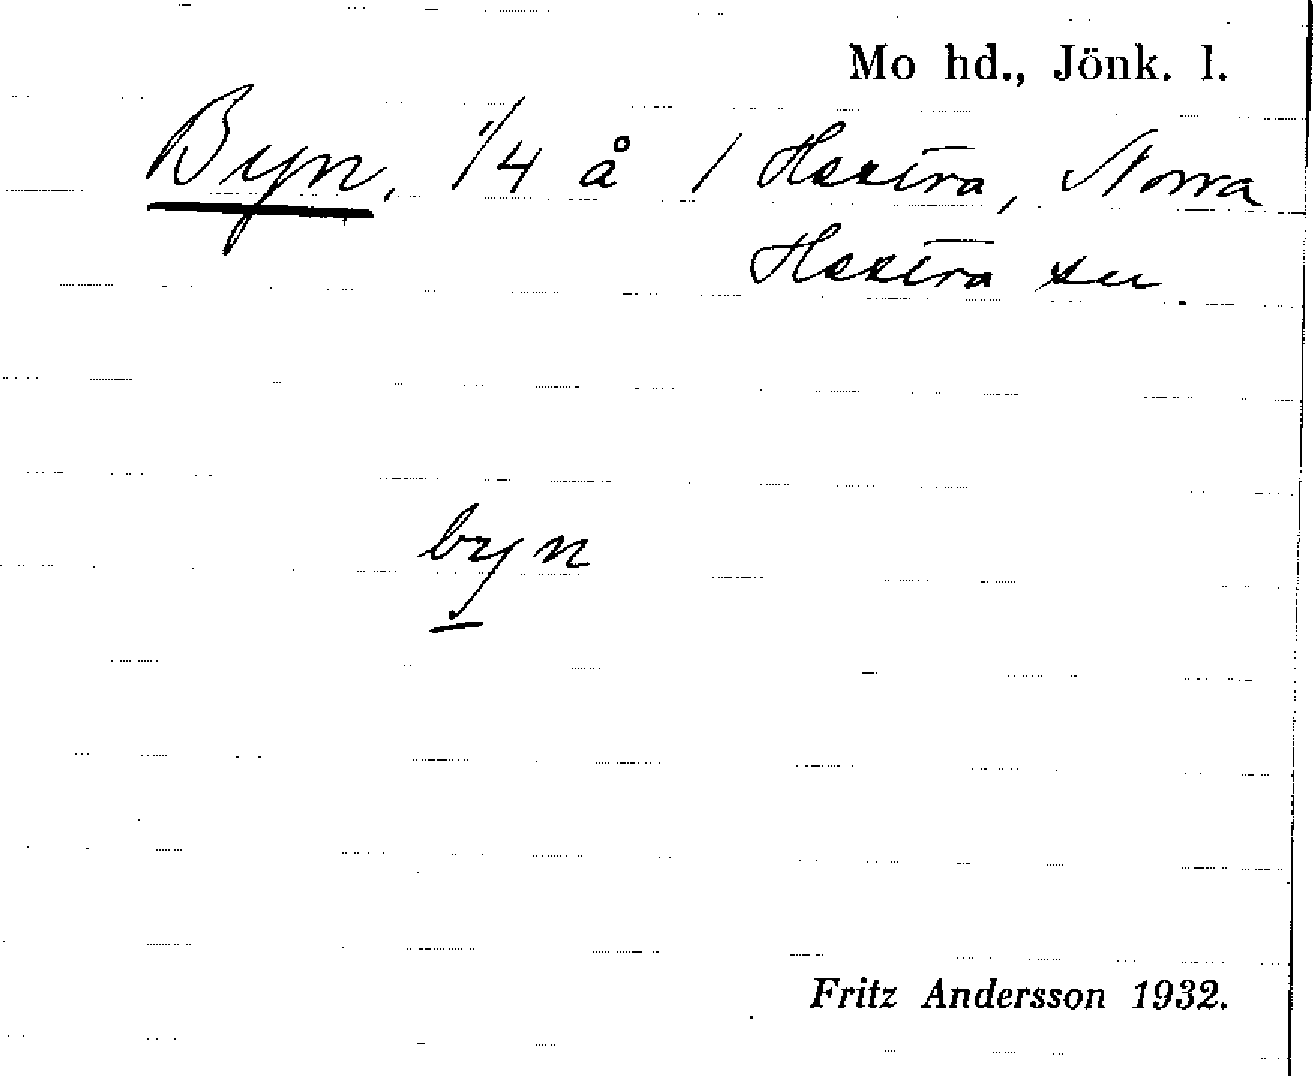 Mo hd., Jönk. l.
Byn, 1/4 å 1 Hestra, Norra
Hestra sn.
byn
Fritz Andersson 1932.